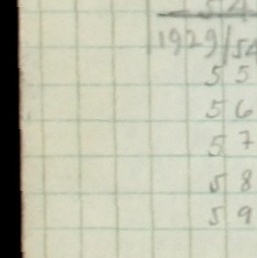 1929/54
55
56
57
58
59